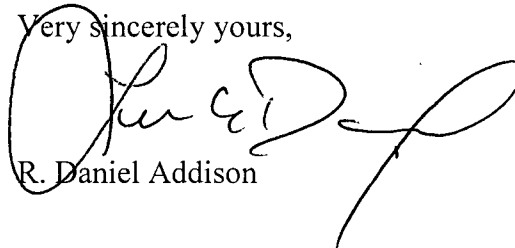 Very sincerely yours,
R. Daniel Addison